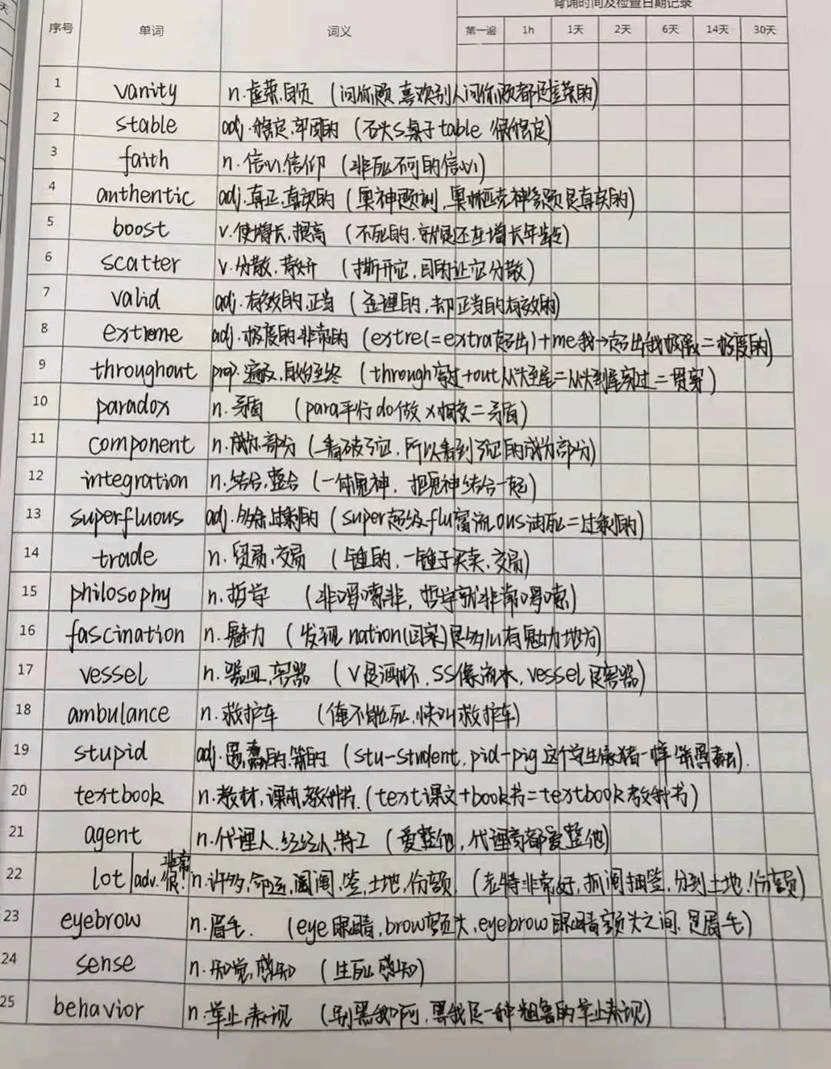 背诵时间及检查日期记录
序号 单词 词义 第一遍 1h 1天 2天 6天 14天 30天
1 vanity n.虚荣,自负 (问你颜,喜欢别人问你颜都是虚荣的)
2 stable adj.稳定,牢固的 (石头s桌子table 很稳定)
3 faith n.信心,信仰 (非死不可的信心)
4 authentic adj.真正,真实的 (奥神题刻,奥林匹克神 题是真实的)
5 boost v.使增长,提高 (不死的,就是还在增长年 )
6 scatter v.分散,散开 (撕开它,目的让它分散)
7 valid adj.有效的,正当 (歪理的,却正当的有效的)
8 extreme adj.极度的非常的 (extre(=extra超出)+me我→超出我极限=极度的)
9 throughout prep.遍及,自始至终 (through穿过+out从头至尾=从头到尾穿过=贯穿)
10 paradox n.矛盾 (para平行do做x相反=矛盾)
11 component n.成分,部分 (看破 它,所以看到 它的成分部分)
12 integration n.结合,整合 (一体鬼神,把鬼神结合一起)
13 superfluous adj.多余,过剩的 (super超级flu富流ous油死=过剩的)
14 trade n.贸易,交易 ( 的,一 于买卖,交易)
15 philosophy n.哲学 (非啰嗦非,哲学就非常啰嗦)
16 fascination n.魅力 (发现nation(国家)是多么有魅力地方)
17 vessel n.器皿,容器 (V是酒杯,SS像流水,vessel是容器)
18 ambulance n.救护车 (俺不能死,快叫救护车)
19 stupid adj.愚蠢的,笨的 (stu-student,pid-pig这个学生像猪一样笨愚蠢).
20 textbook n.教材,课本,教科书.(text课文+book书=textbook教科书)
21 agent n.代理人,经纪人,特工 (爱整他,代理商都爱整他)
22 lot adv.非常很 n.许多,命运,阄阄,签,土地,份额 (老特非常好,抓阄抽签,分到土地,份额)
23 eyebrow n.眉毛. (eye眼睛,brow额头,eyebrow眼睛额头之间,是眉毛)
24 sense n.知觉,感知 (生死感知)
25 behavior n.举止,表现 (别黑我啊,黑我是一种粗鲁的举止表现)